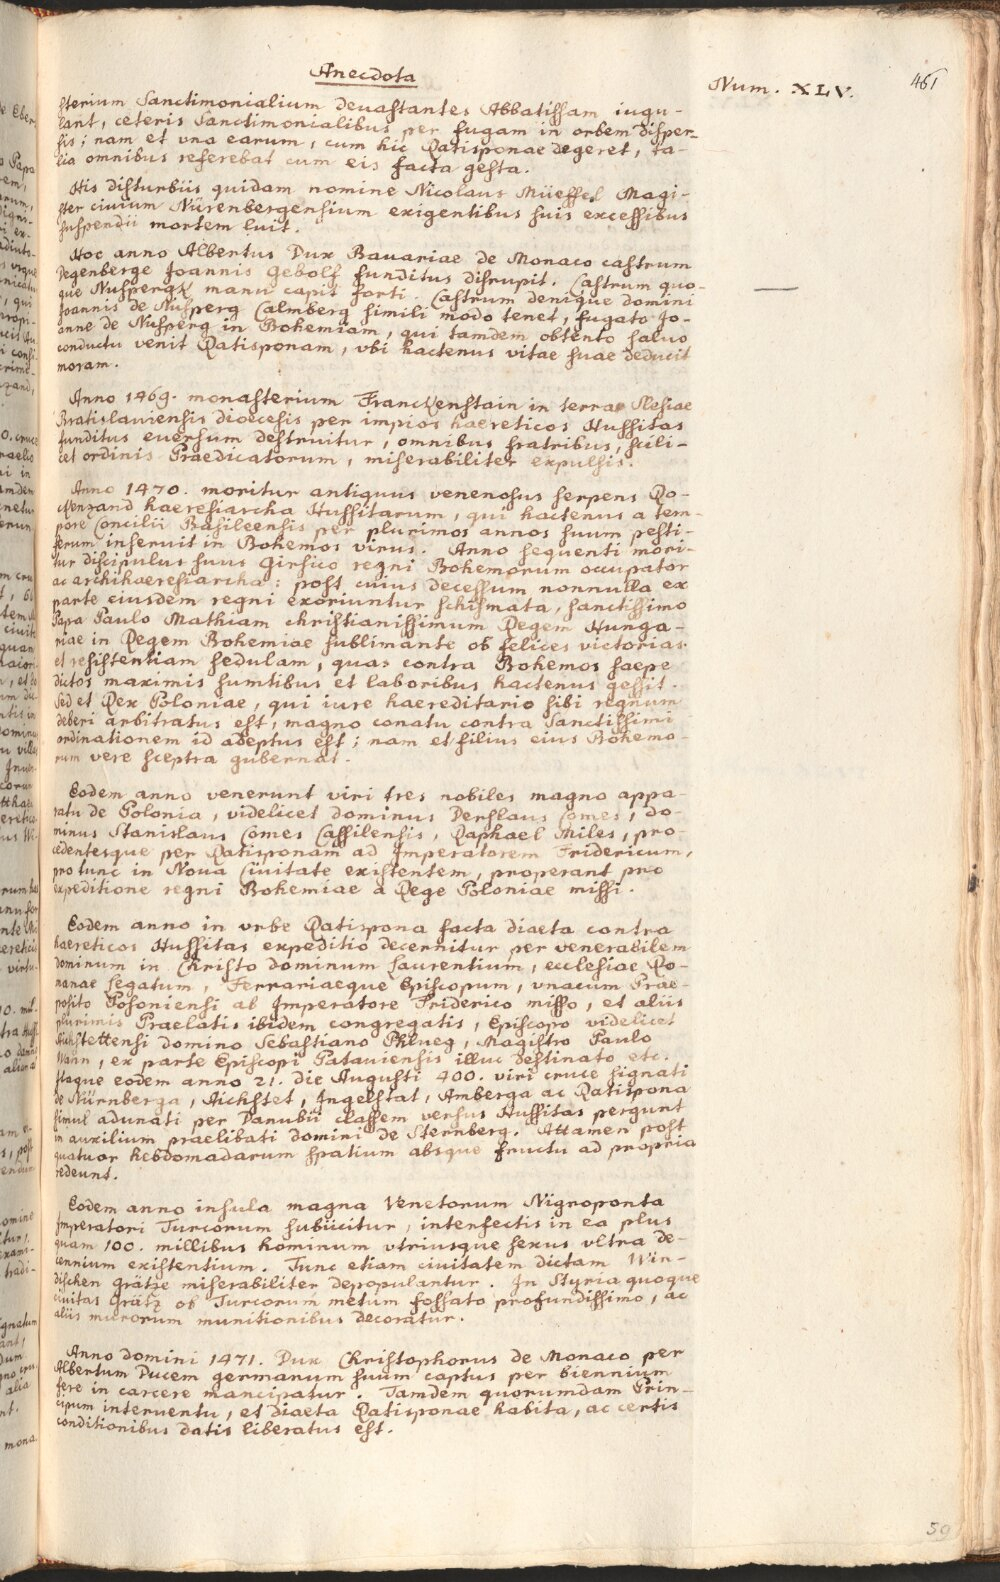 Anecdota
Num. XLV.
461
sterium Sanctimonialium devastantes Abbatissam iugu-
lant, ceteris Sanctimonialibus per fugam in orbem disper-
sis; nam et vna earum, cum hic Ratisponae degeret, ta-
lia omnibus referebat cum eis facta gesta.
His disturbiis quidam nomine Nicolaus Müeffel Magi-
ster civium Nürenbergensium exigentibus suis excessibus
suspendii mortem luit.
Hoc anno Albertus Dux Bavariae de Monaco castrum
Degenberge Joannis Gebolf funditus disrupit. Castrum quo-
que Nusperg manu capit forti. Castrum denique domini
Joannis de Nusperg Calmberg simili modo tenet, fugato Jo-
anne de Nusperg in Bohemiam, qui tamdem obtento salvo
conductu venit Ratisponam, vbi hactenus vitae suae deducit
moram.
Anno 1469. monasterium Franckenstain in terra Slesiae
Bratislaviensis dioecesis per impios haereticos Hussitas
funditus eversum destruitur, omnibus fratribus, scili-
cet ordinis Praedicatorum, miserabiliter expulsis.
Anno 1470. moritur antiquus venenosus serpens Ro-
ckenzand haeresiarcha Hussitarum, qui hactenus a tem-
pore Concilii Basileensis per plurimos annos suum pesti-
ferum inseruit in Bohemos virus. Anno sequenti mori-
tur discipulus suus Girsico regni Bohemorum occupator
ac archihaeresiarcha: post cuius decessum nonnulla ex
parte eiusdem regni exoriuntur schismata, sanctissimo
Papa Paulo Mathiam christianissimum Regem Hunga-
riae in Regem Bohemiae sublimante ob felices victorias
et resistentiam sedulam, quas contra Bohemos saepe
dictos maximis sumtibus et laboribus hactenus gessit.
Sed et Rex Poloniae, qui iure haereditario sibi regnum
deberi arbitratus est, magno conatu contra Sanctissimi
ordinationem id adeptus est; nam et filius eius Bohemo-
rum vere sceptra gubernat.
Eodem anno venerunt viri tres nobiles magno appa-
ratu de Polonia, videlicet dominus Derslaus Comes, do-
minus Stanislaus Comes Cassilensis, Raphael Miles, pro-
cedentesque per Ratisponam ad Imperatorem Fridericum,
pro tunc in Nova Civitate existentem, properant pro
expeditione regni Bohemiae a Rege Poloniae missi.
Eodem anno in vrbe Ratispona facta diaeta contra
haereticos Hussitas expeditio decernitur per venerabilem
dominum in Christo dominum Laurentium, ecclesiae Ro-
manae legatum, Ferrariaeque Episcopum, vnacum Prae-
posito Posoniensi ab Imperatore Friderico misso, et aliis
plurimis Praelatis ibidem congregatis, Episcopo videlicet
Aichstettensi domino Sebastiano Phlueg, Magistro Paulo
Wann, ex parte Episcopi Pataviensis illuc destinato etc.
Itaque eodem anno 21. die Augusti 400. viri cruce signati
de Nürnberga, Aichstet, Ingelstat, Amberga ac Ratispona
simul adunati per Danubii classem versus Hussitas pergunt
in auxilium praelibati domini de Sternberg. Attamen post
quatuor hebdomadarum spatium absque fructu ad propria
redeunt.
Eodem anno insula magna Venetorum Nigroponta
Imperatori Turcorum subiicitur, interfectis in ea plus
quam 100. millibus hominum vtriusque sexus vltra de-
cennium existentium. Tunc etiam civitatem dictam Win-
dischen grätze miserabiliter depopulantur. In Styria quoque
civitas Grätz ob Turcorum metum fossato profundissimo, ac
aliis murorum munitionibus decoratur.
Anno domini 1471. Dux Christophorus de Monaco per
Albertum Ducem germanum suum captus per biennium
fere in carcere mancipatur. Tamdem quorumdam Prin-
cipum interventu, et diaeta Ratisponae habita, ac certis
conditionibus datis liberatus est.
59